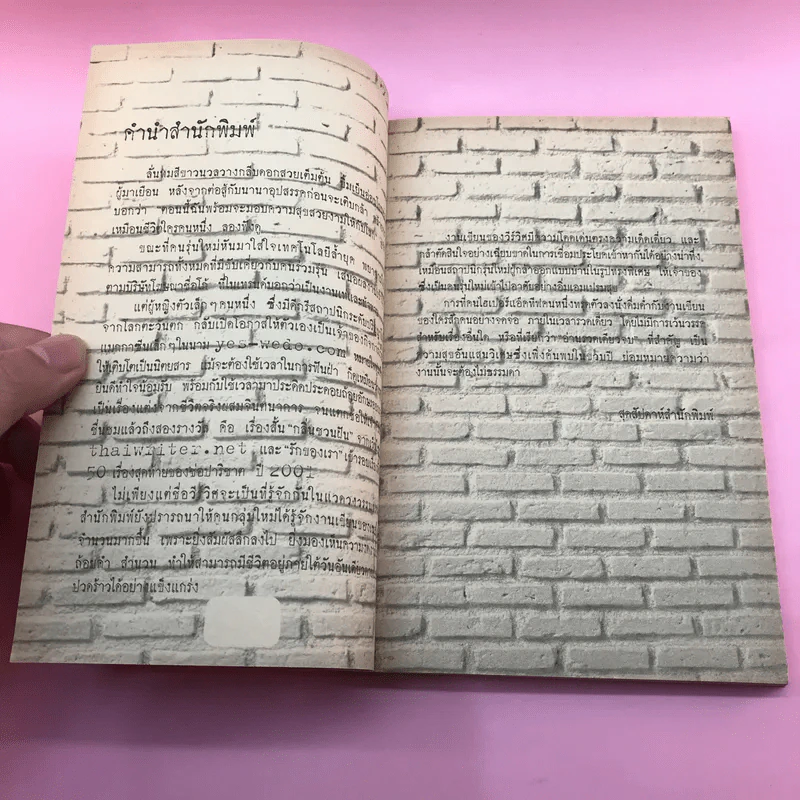 คำนำสำนักพิมพ์
ลั่นทมสีขาวนวลวางกลีบดอกสวยเต็มต้น
ผู้มาเยือน หลังจากต่อสู้กับนานาอุปสรรคก่อนจะเติบกล้า
บอกว่า ตอนนี้ฉันพร้อมจะมอบความสุขสวยงามให้กับ
เหมือนชีวิตใครคนหนึ่ง ลองที่จะ
ขณะที่คนรุ่นใหม่หันมาใส่ใจเทคโนโลยีล้ำยุค
ความสามารถทั้งหมดที่มีขับเคี่ยวกับคนร่วมรุ่น
ตามบริษัทโฆษณาชื่อโก้ ที่ในเทรนด์บอกว่าเป็นงานเท่
แต่ผู้หญิงตัวเล็กๆ คนหนึ่ง ซึ่งมีดีกรีสถาปนิกระดับ
จากโลกตะวันตก กลับเปิดโอกาสให้ตัวเองเป็นเจ้าของ
แมกกาซีนเล็กๆ ในนาม yes-wedo.com
ให้เติบโตเป็นนิตยสาร แม้จะต้องใช้เวลาในการฟันฝ่า
ยินดีทำใจน้อมรับ พร้อมกับใช้เวลามาประดิดประดอยถ้อยอักษร
เป็นเรื่องแต่งจากชีวิตจริงผสมจินตนาการ
ชื่นชมแล้วถึงสองรางวัล คือ เรื่องสั้น “กลิ่นชวนฝัน”
thaiwriter.net และ “รักของเรา” เข้ารอบ
50 เรื่องสุดท้ายของช่อปาริชาต ปี 2001
ไม่เพียงแต่ชื่อวีวิรวิศจะเป็นที่รู้จักกันในแวดวงวรรณ
สำนักพิมพ์ยังปรารถนาให้คนกลุ่มใหม่ได้รู้จักงานเขียนของ
จำนวนมากขึ้น เพราะยิ่งสัมผัสลึกลงไป ยิ่งมองเห็นความ
ถ้อยคำ สำนวน ทำให้สามารถมีชีวิตอยู่ภายใต้วันอันเดียว
ปวดร้าวได้อย่างแข็งแกร่ง
งานเขียนของวีร์วิศมีความโดดเด่นตรงความเด็ดเดี่ยว และ
กล้าตัดสินใจอย่างเฉียบขาดในการเชื่อมประโยคเข้าหากันได้อย่างน่าทึ่ง
เหมือนสถาปนิกรุ่นใหม่ผู้กล้าออกแบบบ้านในรูปทรงพิเศษ ให้เจ้าของ
ซึ่งเป็นคนรุ่นใหม่เข้าไปอาศัยอย่างอิ่มเอมเปรมสุข
การที่คนไฮเปอร์แอ็คทีฟคนหนึ่งทรุดตัวลงนั่งดื่มด่ำกับงานเขียน
ของใครสักคนอย่างจดจ่อ ภายในเวลารวดเดียว โดยไม่มีการเว้นวรรค
สำหรับเรื่องอื่นใด หรือที่เรียกว่า “อ่านรวดเดียวจบ” ที่สำคัญ เป็น
ความสุขอันแสนวิเศษซึ่งเพิ่งค้นพบใน วันปี ย่อมหมายความว่า
งานนั้นจะต้องไม่ธรรมดา
สุดสัปดาห์สำนักพิมพ์